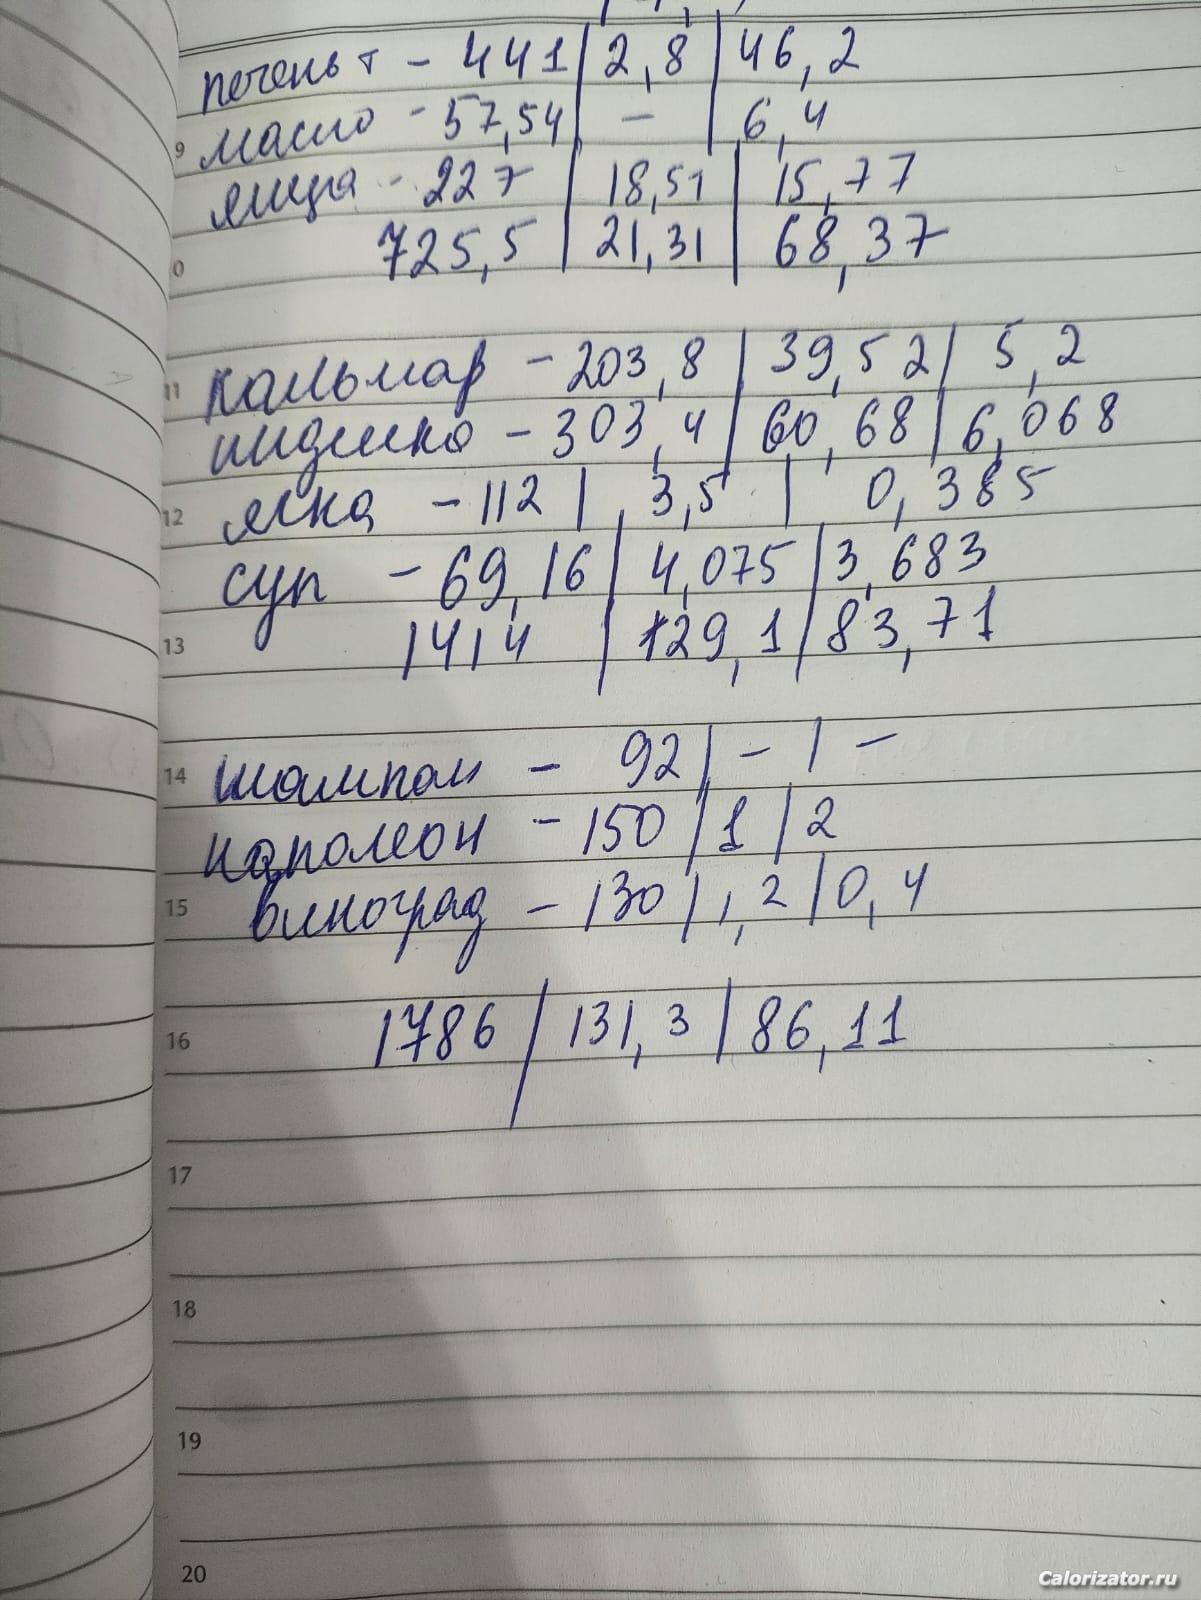 печень т - 441 | 2,8 | 46,2
9
масло - 57,54 | - | 6,4
яйца - 227 | 18,51 | 15,77
725,5 | 21,31 | 68,37
0
кальмар - 203,8 | 39,52 | 5,2
11
индейка - 303,4 | 60,68 | 6,068
12
ячка - 112 | 3,5 | 0,385
суп - 69,16 | 4,075 | 3,683
13
1414 | 129,1 | 83,71
14
шампан - 92 | - | -
наполеон - 150 | 1 | 2
15
виноград - 130 | 1,2 | 0,4
16
1786 | 131,3 | 86,11
17
18
19
20
Calorizator.ru